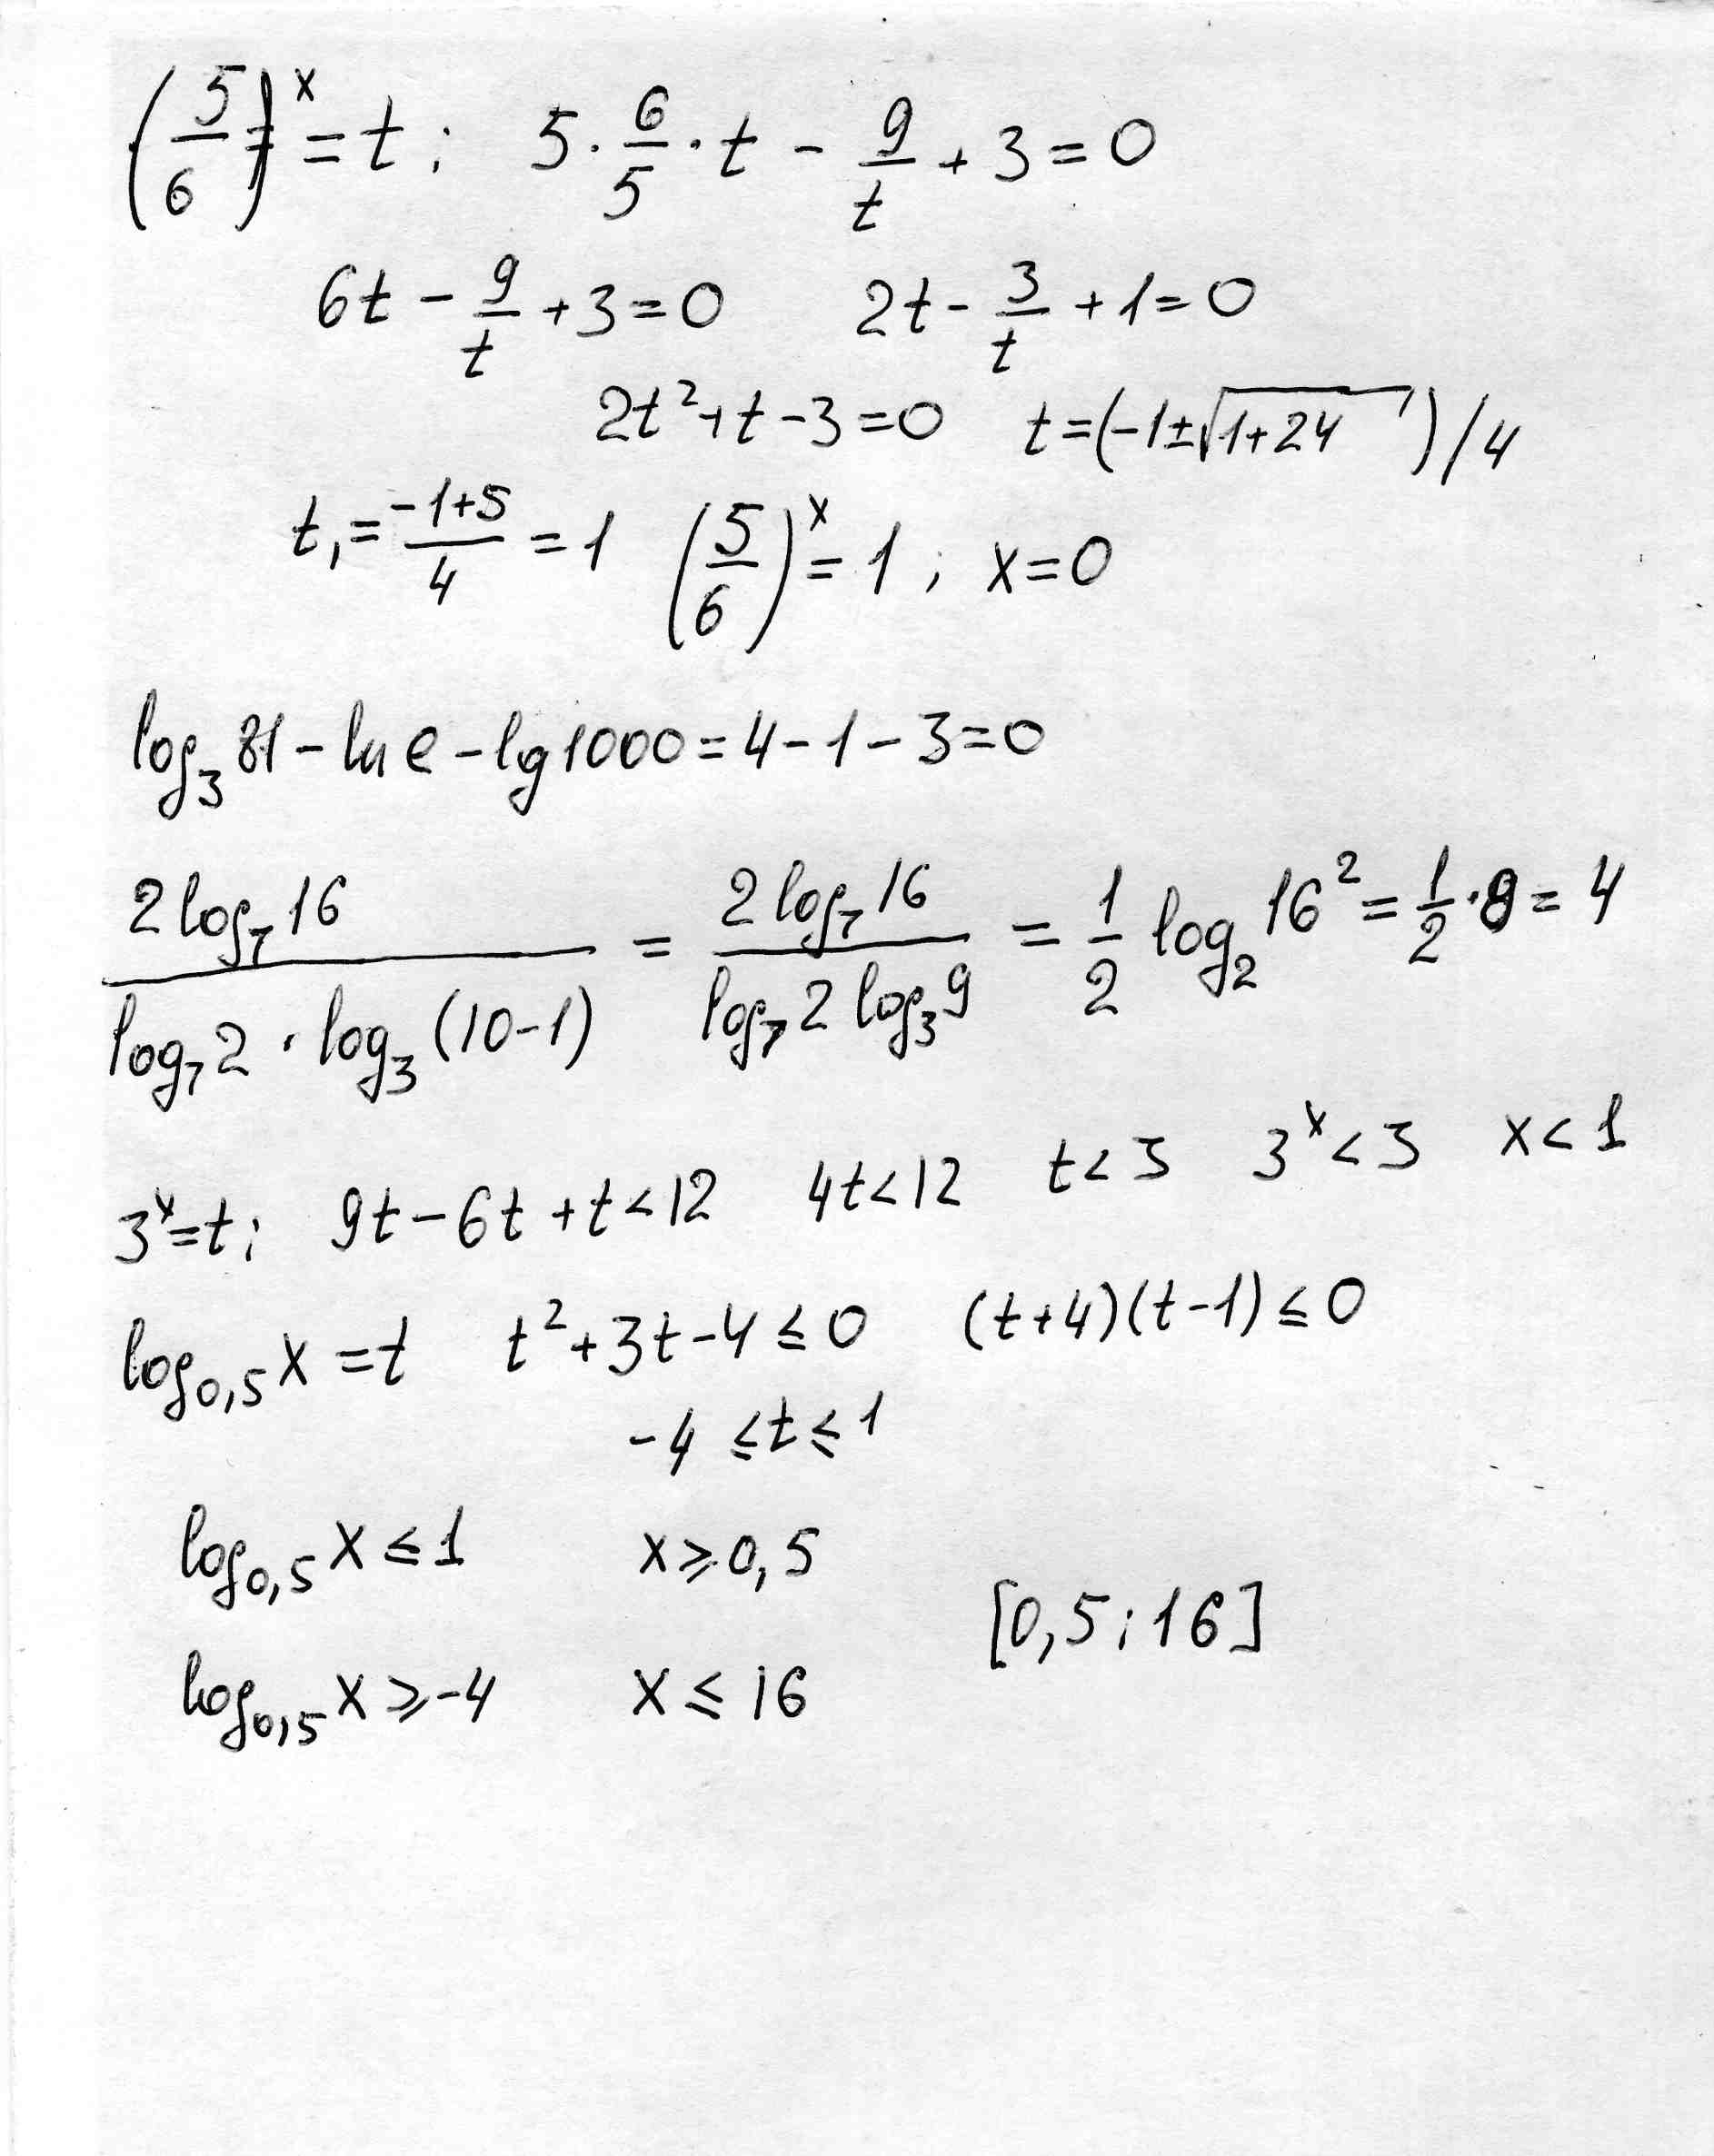 (5/6)^x = t; 5·6/5·t - 9/t + 3 = 0
6t - 9/t + 3 = 0 2t - 3/t + 1 = 0
2t² + t - 3 = 0 t = (-1±√(1+24))/4
t₁ = (-1+5)/4 = 1 (5/6)^x = 1; x = 0
log₃ 81 - ln e - lg 1000 = 4 - 1 - 3 = 0
2 log₇ 16 / (log₇ 2 · log₃ (10-1)) = 2 log₇ 16 / (log₇ 2 log₃ 9) = 1/2 log₂ 16² = 1/2 · 8 = 4
3^x = t; 9t - 6t + t < 12 4t < 12 t < 3 3^x < 3 x < 1
log₀,₅ x = t t² + 3t - 4 ≤ 0 (t+4)(t-1) ≤ 0
-4 ≤ t ≤ 1
log₀,₅ x ≤ 1 x ≥ 0,5
[0,5; 16]
log₀,₅ x ≥ -4 x ≤ 16